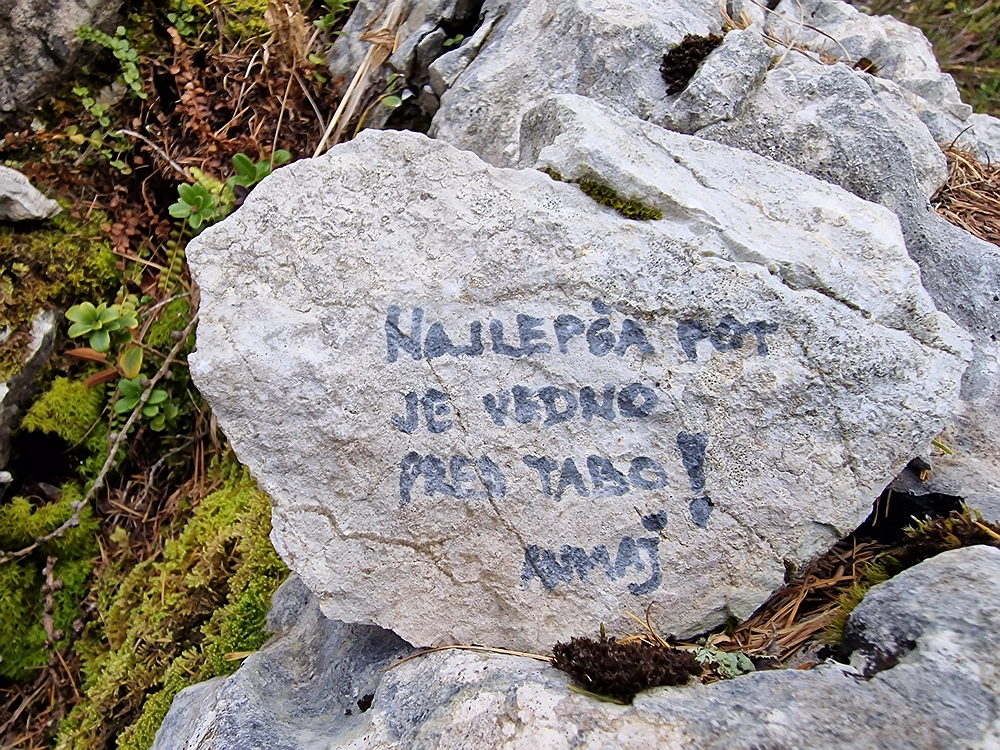 NAJLEPŠA POT
JE VEDNO
PRED TABO!